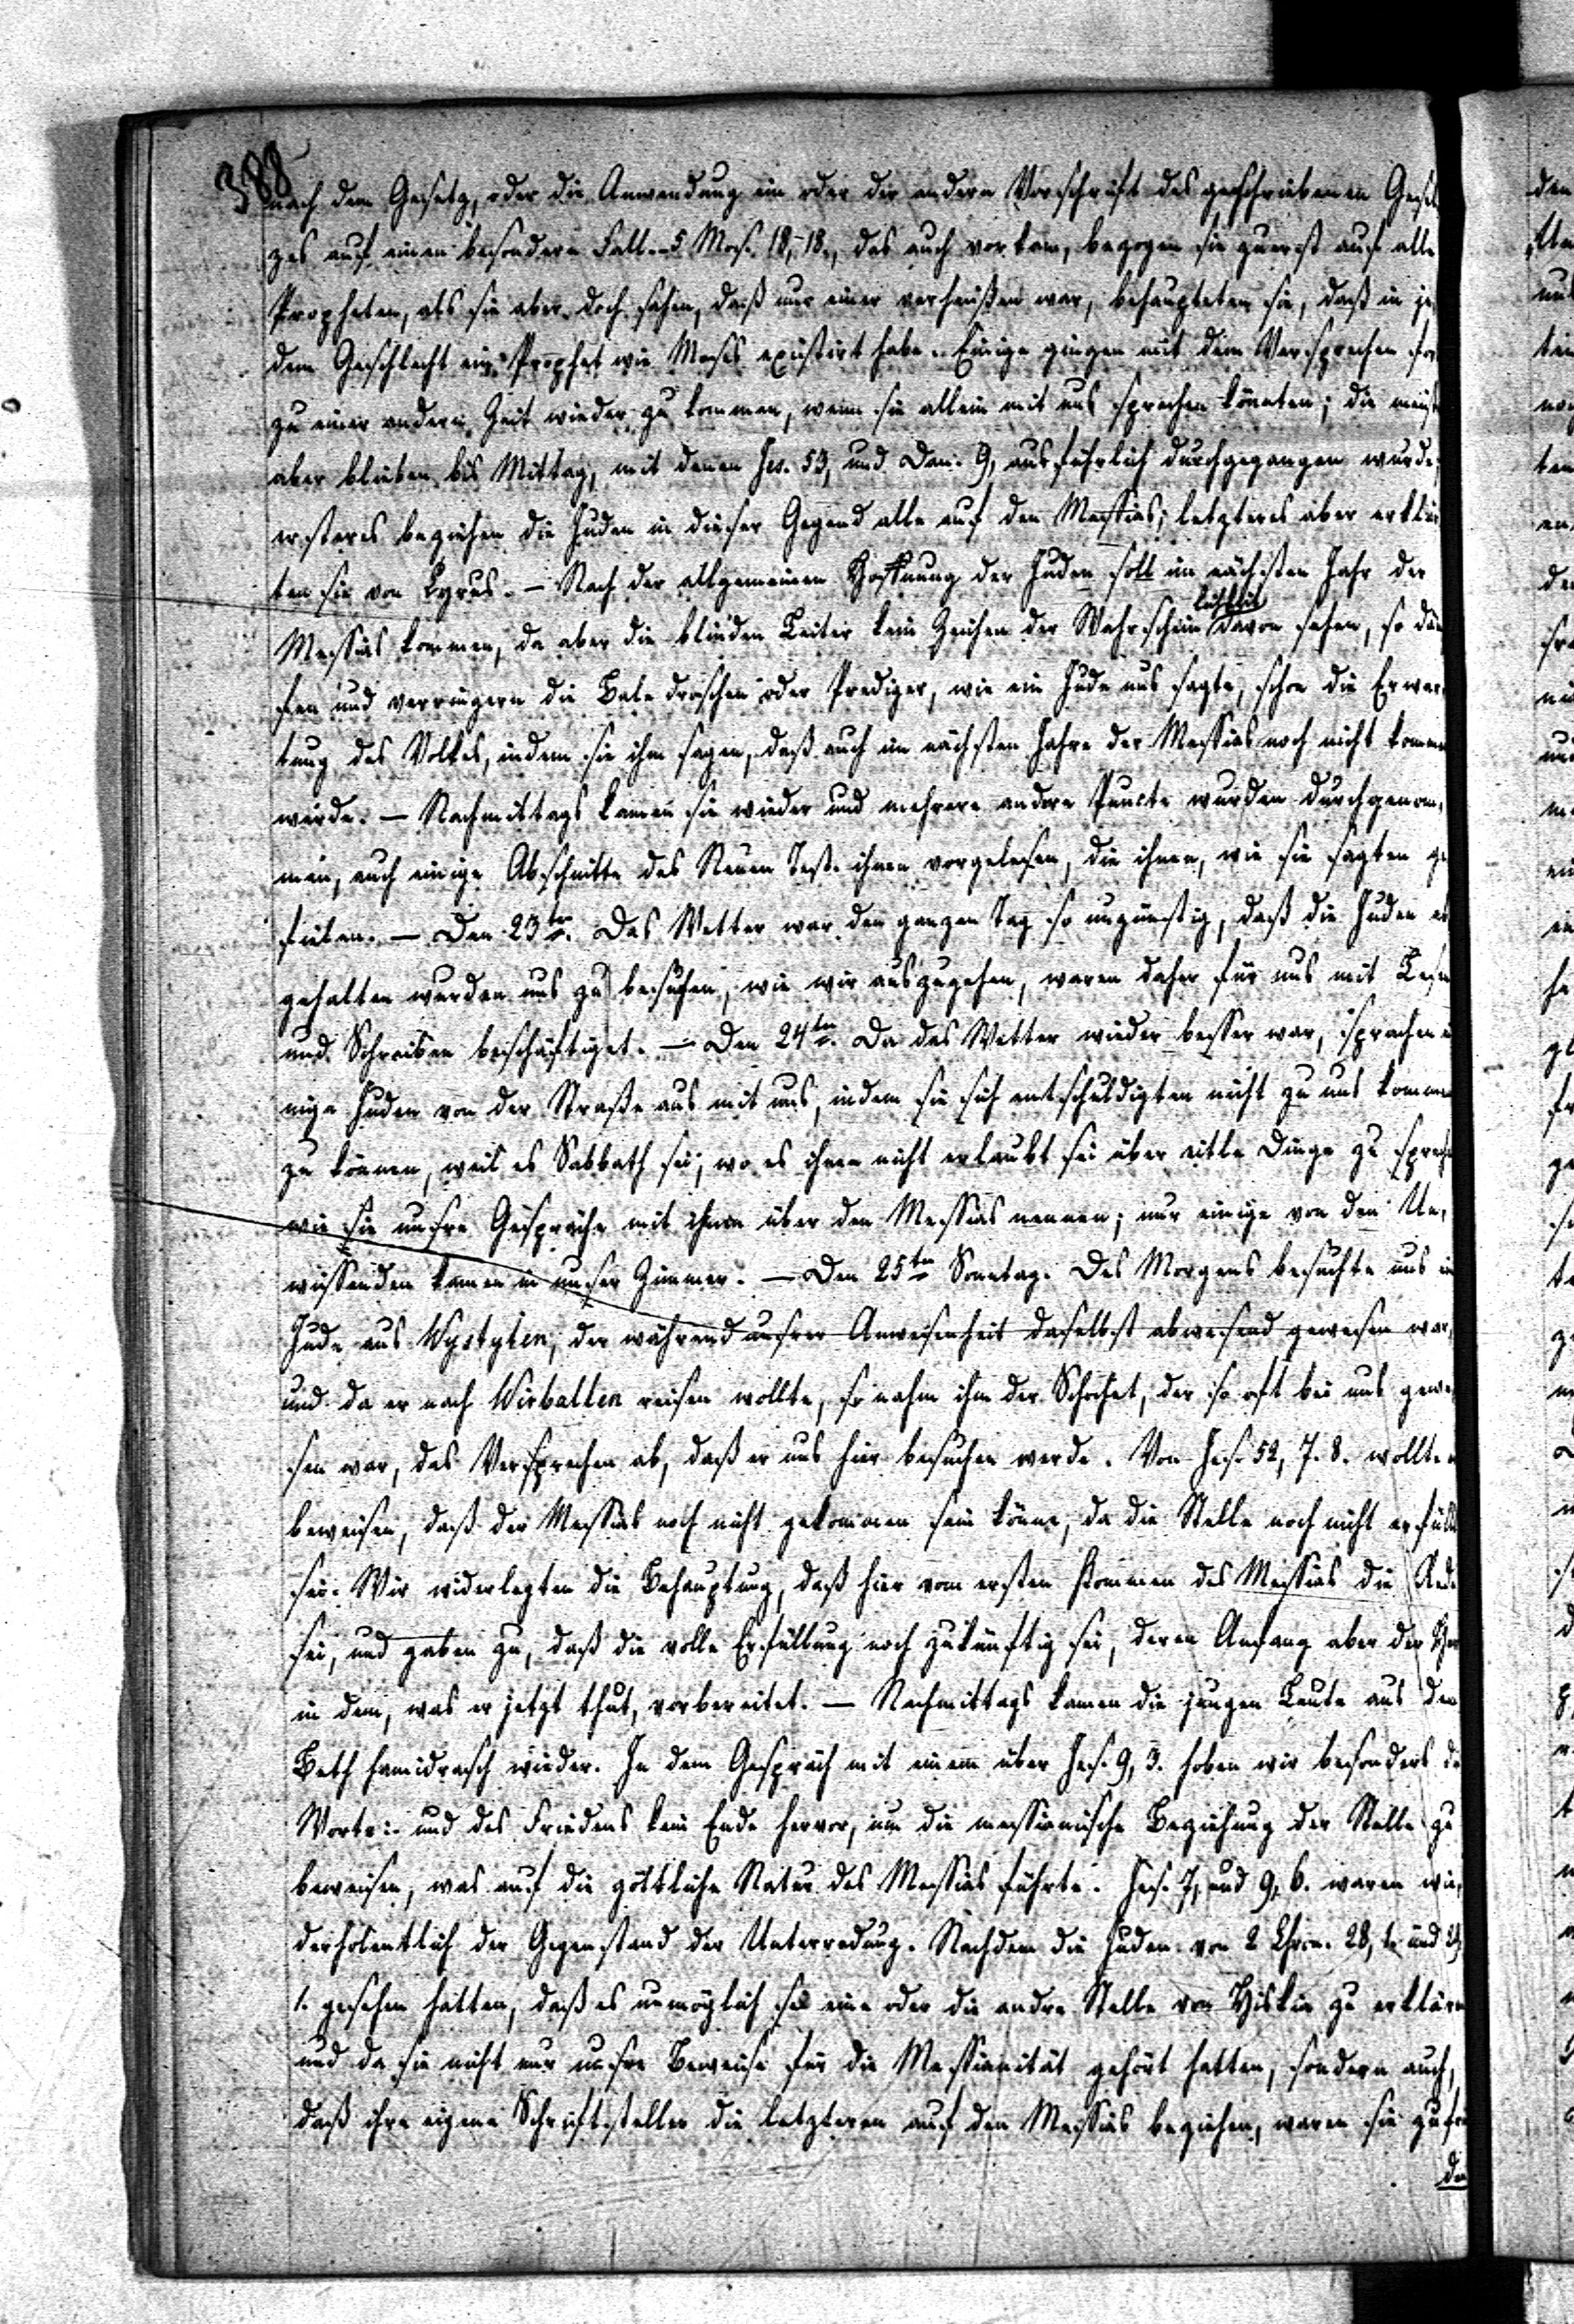 388
nach dem Gesetz, oder die Anwendung ein oder der andern Vorschrift des geschriebenen Geset
zes auf einen besondern Fall. - 5 Mos. 18, 18., das auch vorkam, bezogen sie zuerst auf alle
Propheten, als sie aber doch sahen, daß nur einer verheißen war, behaupteten sie, daß in je
dem Geschlecht ein Prophet wie Moses existirt habe. Einige gingen mit dem Versprechen fort
zu einer andern Zeit wieder zu kommen, wenn sie allein mit uns sprechen könnten; die meist
aber blieben bis Mittag, mit denen Jes. 53, und Dan. 9, ausführlich durchgegangen wurde,
ersteres beziehen die Juden in dieser Gegend alle auf den Messias; letzteres aber erklär
ten sie von Cyrus. - Nach der allgemeinen Hoffnung der Juden soll im nächsten Jahr der
Messias kommen, da aber die blinden Leiter kein Zeichen der Wahrscheinlichkeit davon sehen, so däm
fen und verringern die Bale droschen oder Prediger, wie ein Jude uns sagte, schon die Erwar
tung des Volkes, indem sie ihm sagen, daß auch im nächsten Jahre der Messias noch nicht kommen
würde. - Nachmittags kamen sie wieder und mehrere andere Puncte wurden durchgenom,
men, auch einige Abschnitte des Neuen Test. ihnen vorgelesen, die ihnen, wie sie sagten ge
fielen. - Den 23ten. Das Wetter war den ganzen Tag so ungünstig, daß die Juden ab
gehalten wurden uns zu besuchen, wie wir auszugehen, waren daher für uns mit Lesen
und Schreiben beschäftiget. - Den 24ten. Da das Wetter wieder besser war, sprachen ei
nige Juden von der Straße aus mit uns, indem sie sich entschuldigten nicht zu uns kommen
zu können, weil es Sabbath sei, wo es ihnen nicht erlaubt sei über eitle Dinge zu sprechen
wie sie unsre Gespräche mit ihnen über den Messias nennen; nur einige von den Un,
wissenden kamen in unser Zimmer. - Den 25ten Sonntag. Des Morgens besuchte uns ein
Jude aus Wystyten, der während unsrer Anwesenheit daselbst abwesend gewesen war,
und da er nach Wirballen reisen wollte, so nahm ihm der Schochet, der so oft bei uns gewe
sen war, das Versprechen ab, daß er uns hier besuchen werde. Von Jes. 52, 7. 8. wollte er
beweisen, daß der Messias noch nicht gekommen sein könne, da die Stelle noch nicht erfüllt
sei. Wir widerlegten die Behauptung, daß hier vom ersten Kommen des Messias die Rede
sei, und gaben zu, daß die volle Erfüllung noch zukünftig sei, deren Anfang aber der Herr
in dem, was er jetzt thut, vorbereitet. - Nachmittags kamen die jungen Leute aus dem
Beth hamidrasch wieder. In dem Gespräch mit einem über Jes. 9, 3. hoben wir besonders die
Worte: und des Friedens kein Ende hervor, um die messianische Beziehung der Stelle zu
beweisen, was auf die göttliche Natur des Messias führte. Jes. 7, und 9, 6. waren wie,
derholentlich der Gegenstand der Unterredung. Nachdem die Juden von 2 Chron. 28, 1. und 29,
1. gesehen hatten, daß es unmöglich sei eine oder die andre Stelle von Hiskia zu erklären
und da sie nicht nur unsre Beweise für die Messianität gehört hatten, sondern auch,
daß ihre eigene Schriftsteller die letzteren auf den Messias beziehen, waren sie zufrie
den